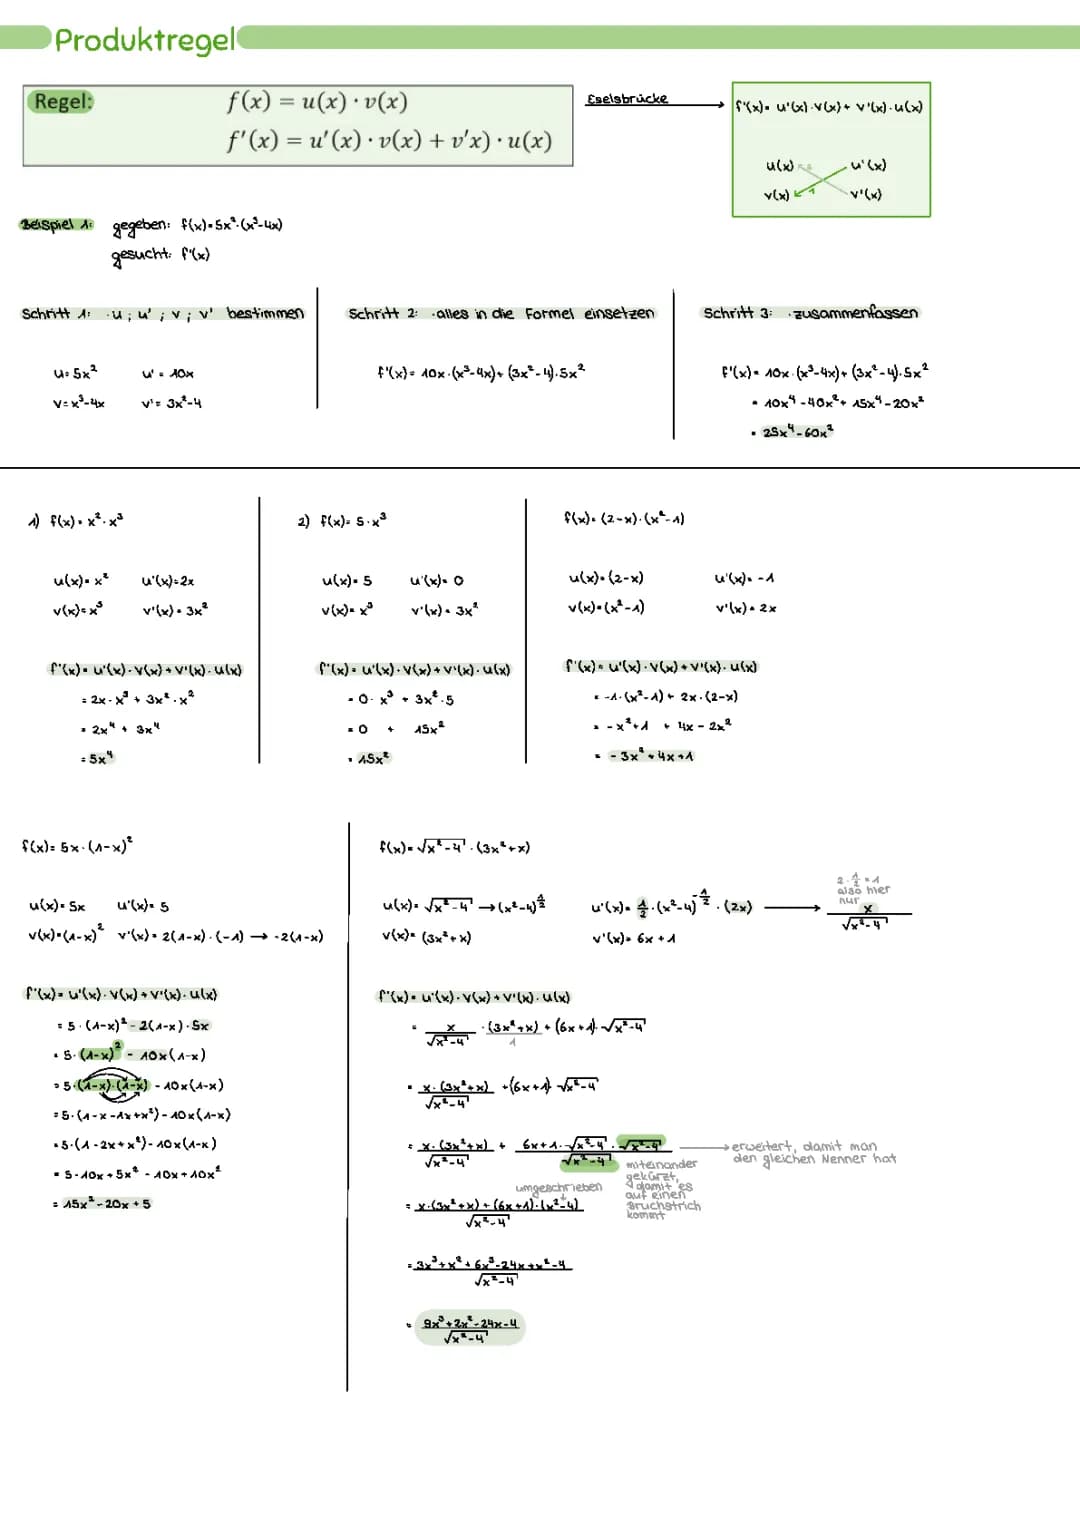 Produktregel
Regel: f(x) = u(x) · v(x)
f'(x) = u'(x) · v(x) + v'x) · u(x)
Eselsbrücke
f'(x)= u'(x)·v(x)+ v'(x)·u(x)
u(x) u'(x)
v(x) v'(x)
Beispiel 1: gegeben: f(x)=5x²·(x³-4x)
gesucht: f'(x)
Schritt 1: ·u ; u' ; v ; v' bestimmen
u=5x² u' = 10x
v=x³-4x v'= 3x²-4
Schritt 2: ·alles in die Formel einsetzen
f'(x)= 10x·(x³-4x)+ (3x²-4)·5x²
Schritt 3: ·zusammenfassen
f'(x)= 10x·(x³-4x)+ (3x²-4)·5x²
= 10x⁴-40x²+ 15x⁴-20x²
= 25x⁴-60x²
1) f(x)= x²·x³
u(x)= x² u'(x)=2x
v(x)=x³ v'(x)= 3x²
f'(x)= u'(x)·v(x)+v'(x)·u(x)
= 2x·x³ + 3x²·x²
= 2x⁴ + 3x⁴
= 5x⁴
2) f(x)= 5·x³
u(x)= 5 u'(x)= 0
v(x)= x³ v'(x)= 3x²
f'(x)= u'(x)·v(x)+v'(x)·u(x)
= 0· x³ + 3x²·5
= 0 + 15x²
= 15x²
f(x)= (2-x)·(x²-1)
u(x)=(2-x) u'(x)= -1
v(x)=(x²-1) v'(x)= 2x
f'(x)= u'(x)·v(x)+v'(x)·u(x)
= -1·(x²-1)+ 2x·(2-x)
= -x²+1 + 4x - 2x²
= -3x²+4x+1
f(x)= 5x·(1-x)²
u(x)= 5x u'(x)= 5
v(x)=(1-x)² v'(x)= 2(1-x)·(-1) → -2(1-x)
f'(x)= u'(x)·v(x)+v'(x)·u(x)
= 5·(1-x)²-2(1-x)·5x
= 5·(1-x)² - 10x(1-x)
= 5·(1-x)·(1-x) - 10x(1-x)
= 5·(1-x-1x+x²)-10x(1-x)
= 5·(1-2x+x²)-10x(1-x)
= 5-10x+5x²-10x+10x²
= 15x²-20x+5
f(x)= √x²-4 · (3x²+x)
u(x)= √x²-4 → (x²-4)^½ u'(x)= ½·(x²-4)^-½ · (2x) →
2·½=1
also hier
nur x
√x²-4
v(x)= (3x²+x) v'(x)= 6x+1
f'(x)= u'(x)·v(x)+v'(x)·u(x)
= x/√x²-4 · (3x²+x)/1 + (6x+1)·√x²-4
= x·(3x²+x)/√x²-4 +(6x+1)·√x²-4
= x·(3x²+x)/√x²-4 + 6x+1·√x²-4·√x²-4/√x²-4 → erweitert, damit man
den gleichen Nenner hat
miteinander
gekürzt,
damit es
auf einen
Bruchstrich
kommt
umgeschrieben
= x·(3x²+x)+(6x+1)·(x²-4)/√x²-4
= 3x³+x²+6x³-24x+x²-4/√x²-4
= 9x³+2x²-24x-4/√x²-4